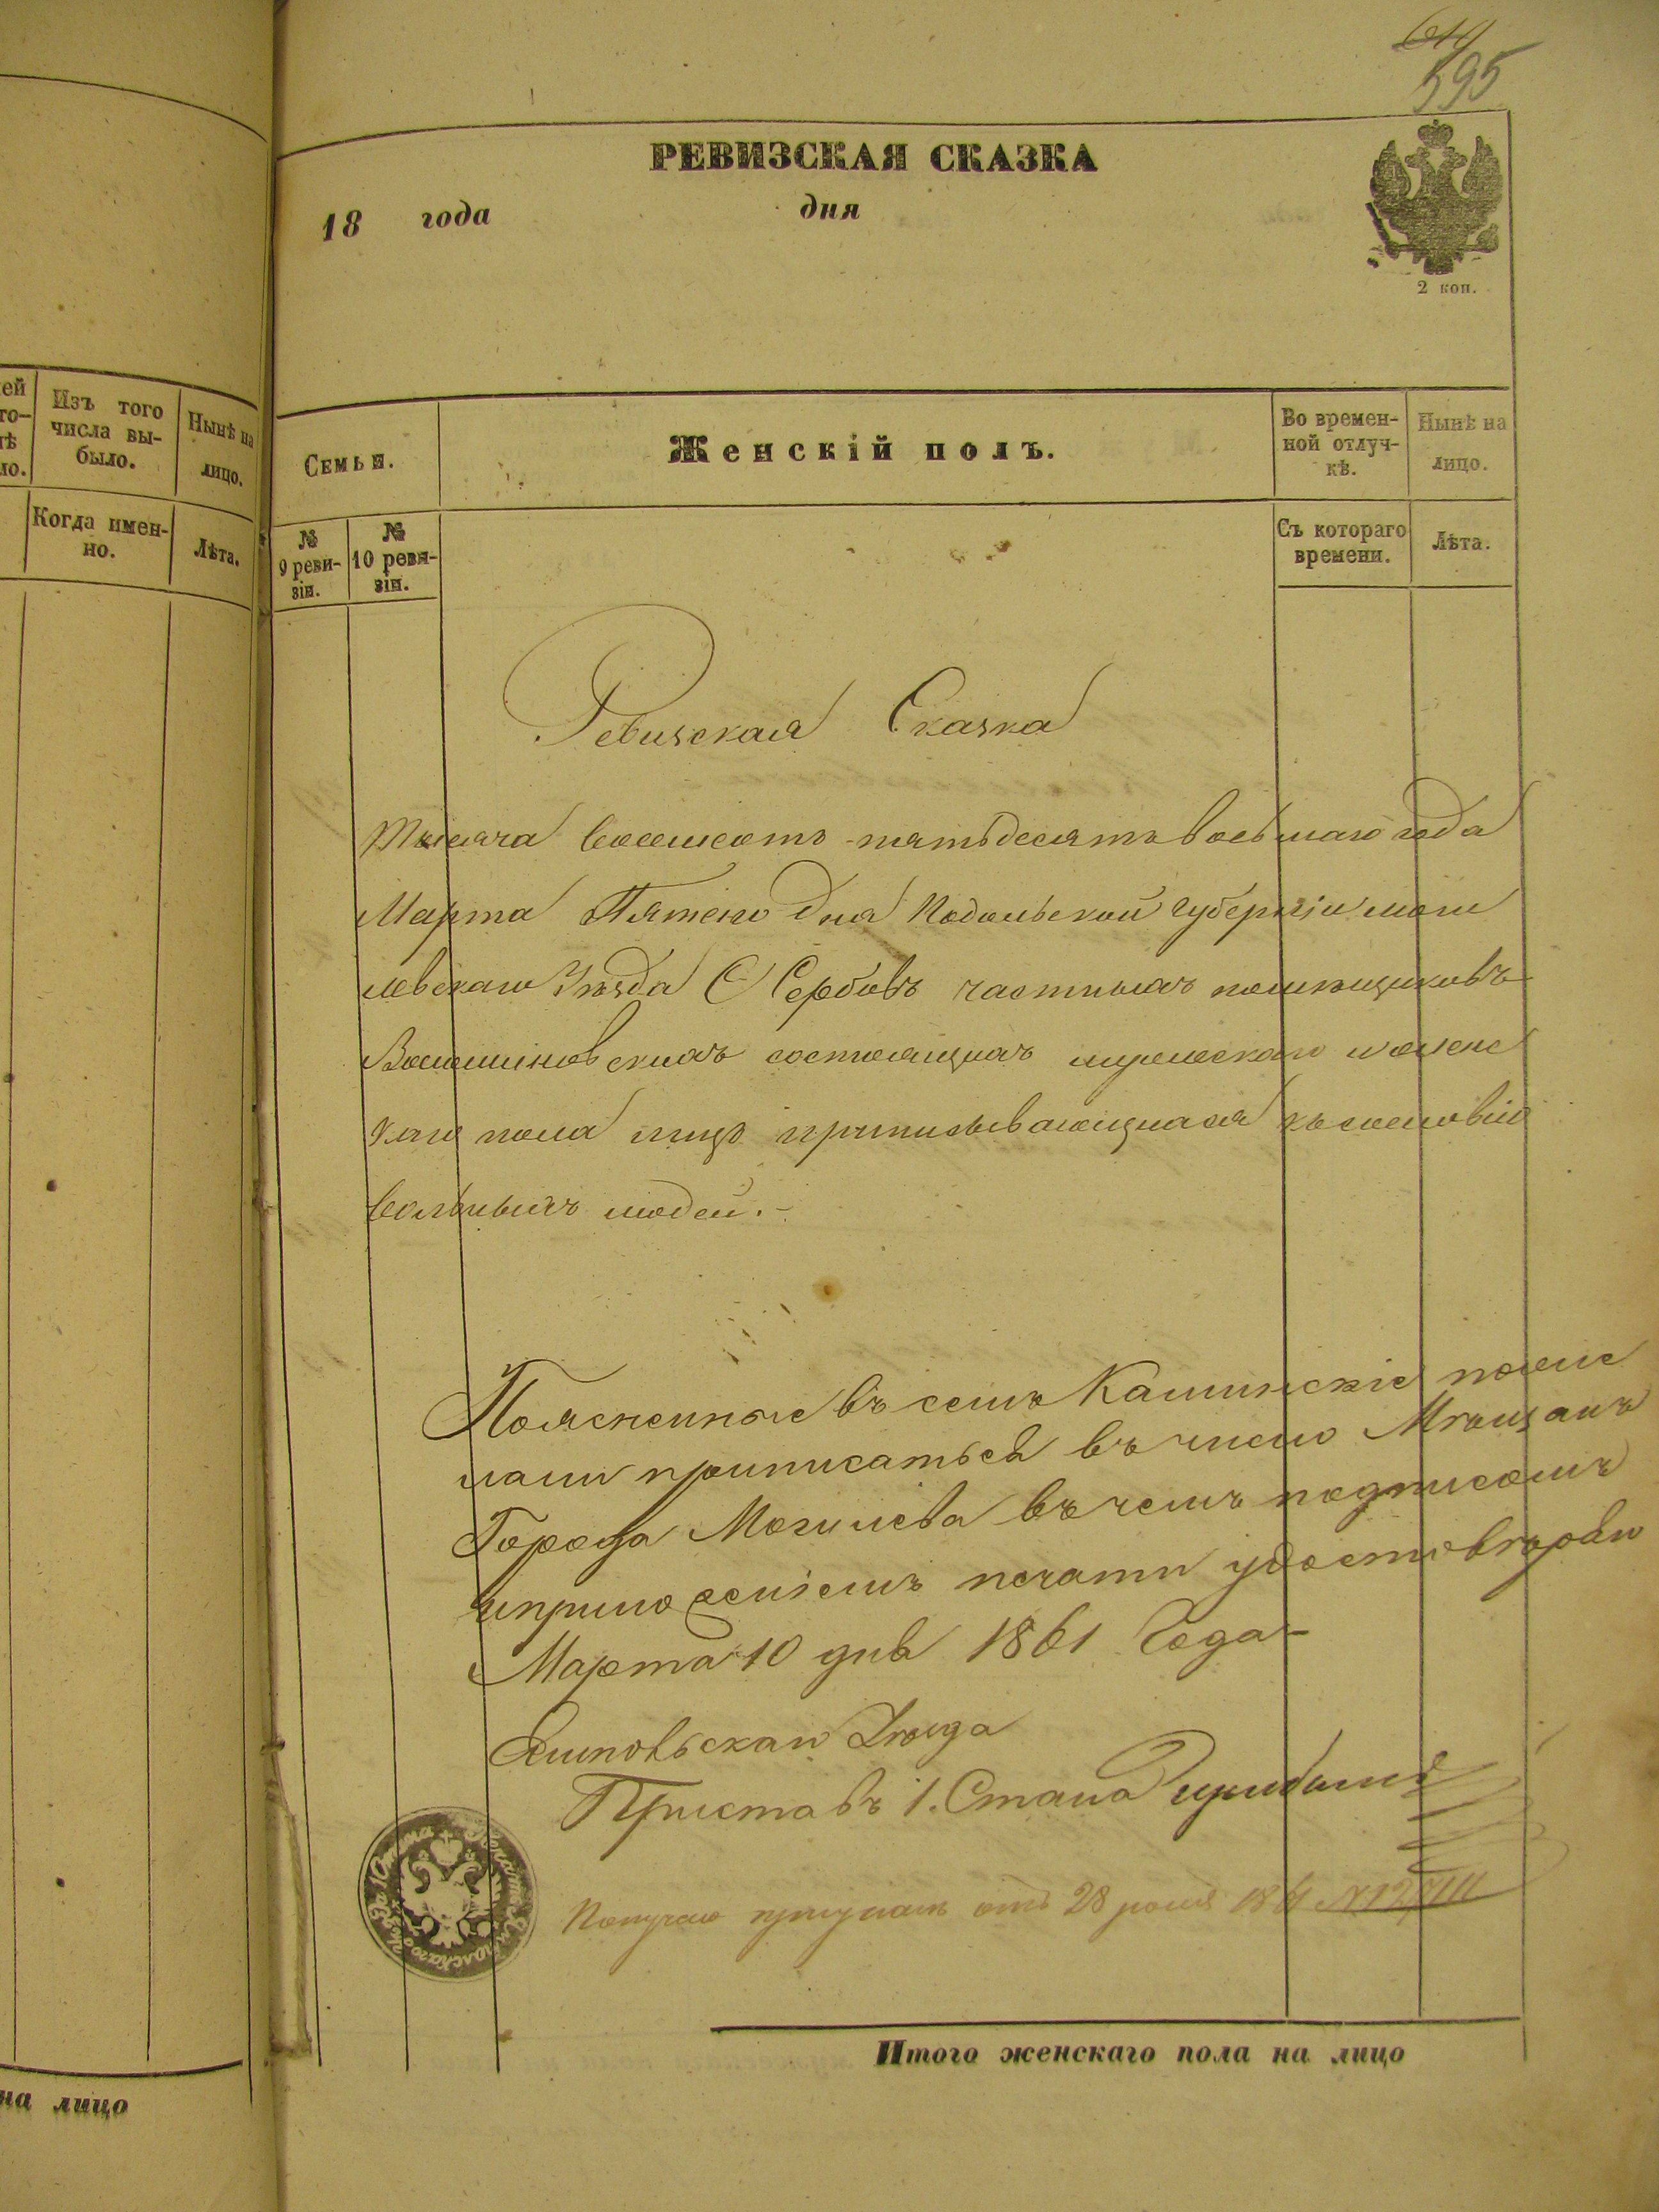 395
РЕВИЗСКАЯ СКАЗКА
18 года дня
2 коп.
Изъ того числа вы-
было.
Нынѣ на
лицо.
Когда имен-
но.
Лѣта.
Семьи.
Женскій полъ.
Во времен-
ной отлуч-
кѣ.
Нынѣ на
лицо.
№
9 реви-
зіи.
№
10 реви-
зіи.
Съ котораго
времени.
Лѣта.
Ревизская Сказка
Тысяча восемсотъ пятьдесятъ восьмаго года
Марта Пятого дня Подольской Губерніи Моги
левскаго Уѣзда С Сербовъ частныхъ помѣщиковъ
состоящихъ мужескаго и женс
каго пола лицъ приписывающихся къ сословію
вольныхъ людей.-
Поясненные въ семъ Каминскіе поже
лали приписаться въ число Мѣщанъ
Города Могилева въ чемъ подписомъ
и приложеніемъ печати удостовѣряю
Марта 10 дня 1861 Года-
Ямпольскаго Уѣзда
Приставъ 1. Стана
отъ 28 1861 №
Итого женскаго пола на лицо
на лицо